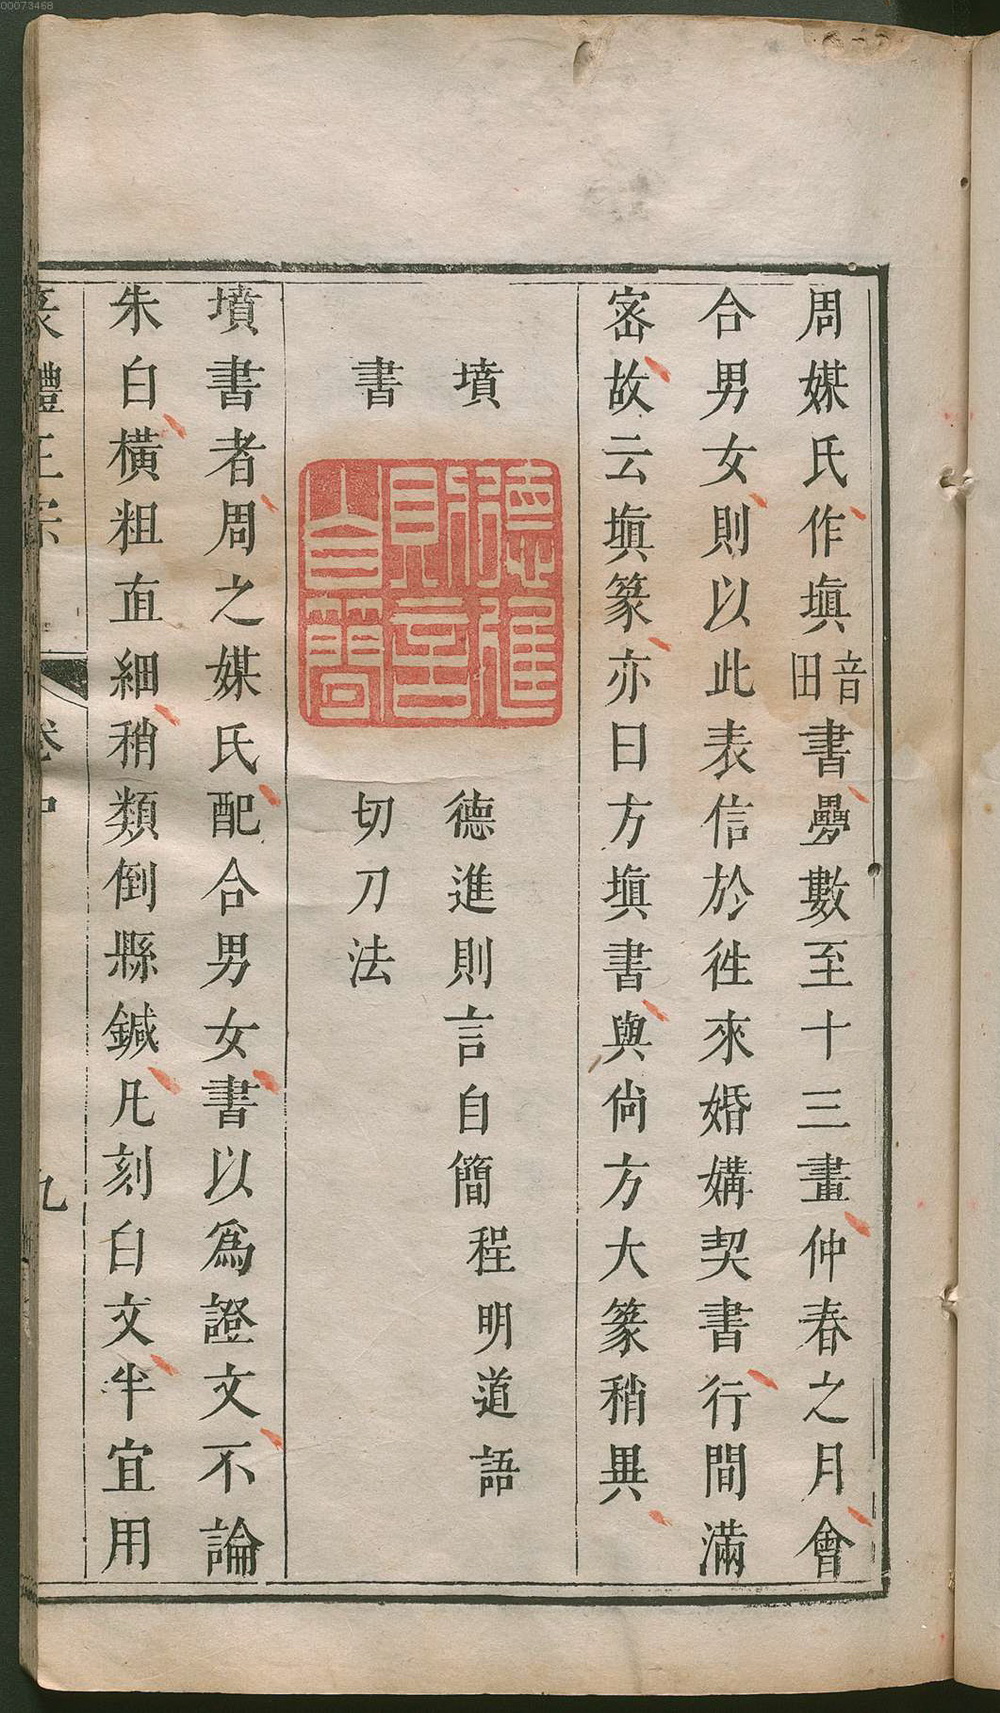 00073468
周媒氏作塡音田書疊數至十三畫仲春之月會
合男女則以此表信於徃來婚媾契書行間滿
宻故云塡篆亦曰方塡書與尙方大篆稍異
墳
書
德進則言自簡
德進則言自簡程明道語
切刀法
墳書者周之媒氏配合男女書以爲證文不論
朱白橫粗直細稍類倒縣鍼凡刻白文半宜用
篆體正宗
卷中
九